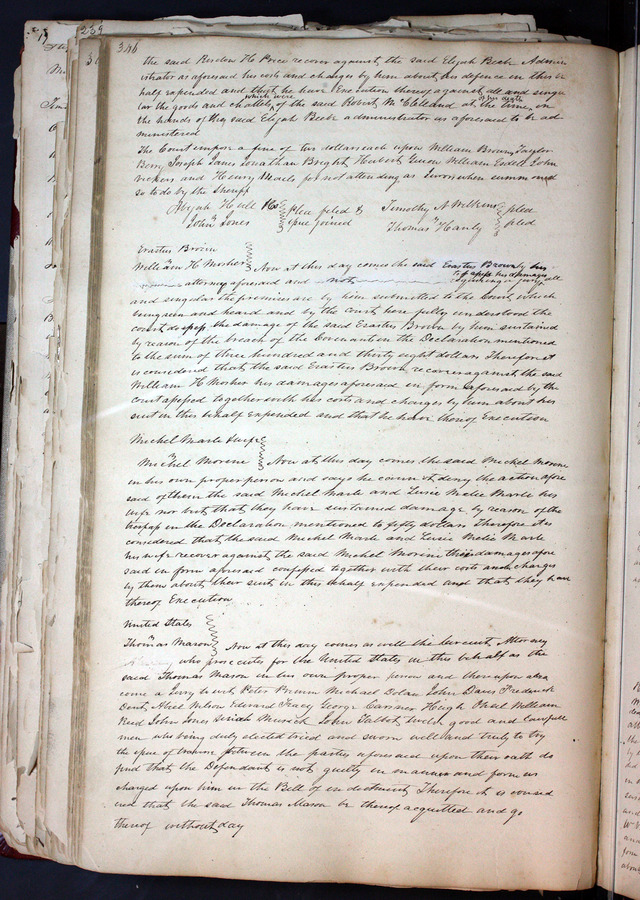 346
the said Risdon H Price recover against the said Elijah Beebe Admin
istrator as aforesaid his costs and charges by him about his defence in this be
half expended and that he have Execution thereof against all and singu
which were of his death
lar the goods and chattels of the said Robert McClelland at the time in
the hands of the said Elijah Beebe administrator as aforesaid to be ad
ministered
The Court empose a fine of two dollars each upon William Brown, Taylor
Berry Joseph Janes Jonathan Bright Hubert William John
Vickers and Henry for not attending as Jurors when summoned
so to do by the Sheriff
Abijah Hull &Co Plea filed & Timothy N Wilkins pled
vs
John Jones issue joined Thomas Hanly pled
Erastus Brown
vs
William H Mosher Now at this day comes the said Erastus Brown by his
to assess his damages
attorney aforesaid and not requiring a jury all
and singular the premises are by him submitted to the Court which
being seen and heard and by the Court here fully understood the
court do assess the damage of the said Erastus Brown by him sustained
by reason of the breach of the Covenant in the Declaration mentioned
to the sum of three hundred and thirty eight dollars Therefore it
is considered that the said Erastus Brown recover against the said
William H Mosher his damages aforesaid in form aforesaid by the
court assessed together with his costs and charges by him about his
suit in this behalf expended and that he have thereof Execution
Michel Marle & wife
vs
Michel Morine Now at this day comes the said Michel Morine
in his own proper person and says he cannot deny the action afore
said of them the said Michel Marle and Marle his
wife nor but that they have sustained damage by reason of the
trespass in the Declaration mentioned to fifty dollars Therefore it is
considered that the said Michel Marle and Marle
his wife recover against the said Michel Morine their damages afore
said in form aforesaid confessed together with their costs and charges
by them about their suit in this behalf expended and that they have
thereof Execution
United States
vs
Thomas Mason Now at this day comes as well the Circuit Attorney
who prosecutes for the United States in this behalf as the
said Thomas Mason in his own proper person and thereupon also
come a Jury to wit, Peter Primm Michael Dolan John Davis Frederick
Dent, Abiel Wilson Edward Tracy George Hugh William
Reed John Jones John Talbot, twelve good and lawfull
men who being duly elected tried and sworn well and truly to try
the issue of traverse between the parties aforesaid upon their oath do
find that the Defendant is not guilty in manner and form as
charged upon him in the Bill of indictment Therefore it is consid
ered that the said Thomas Mason be thereof acquitted and go
thereof without day